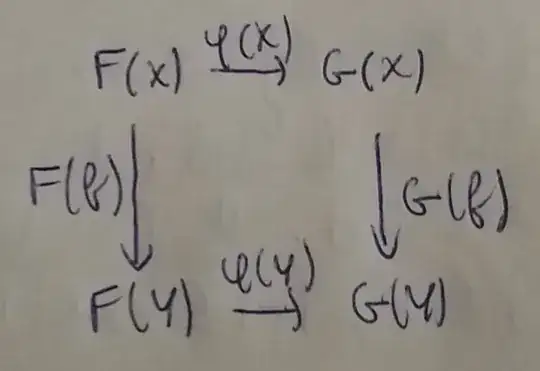 F(X) φ(X) G(X)
F(f) G(f)
F(Y) φ(Y) G(Y)